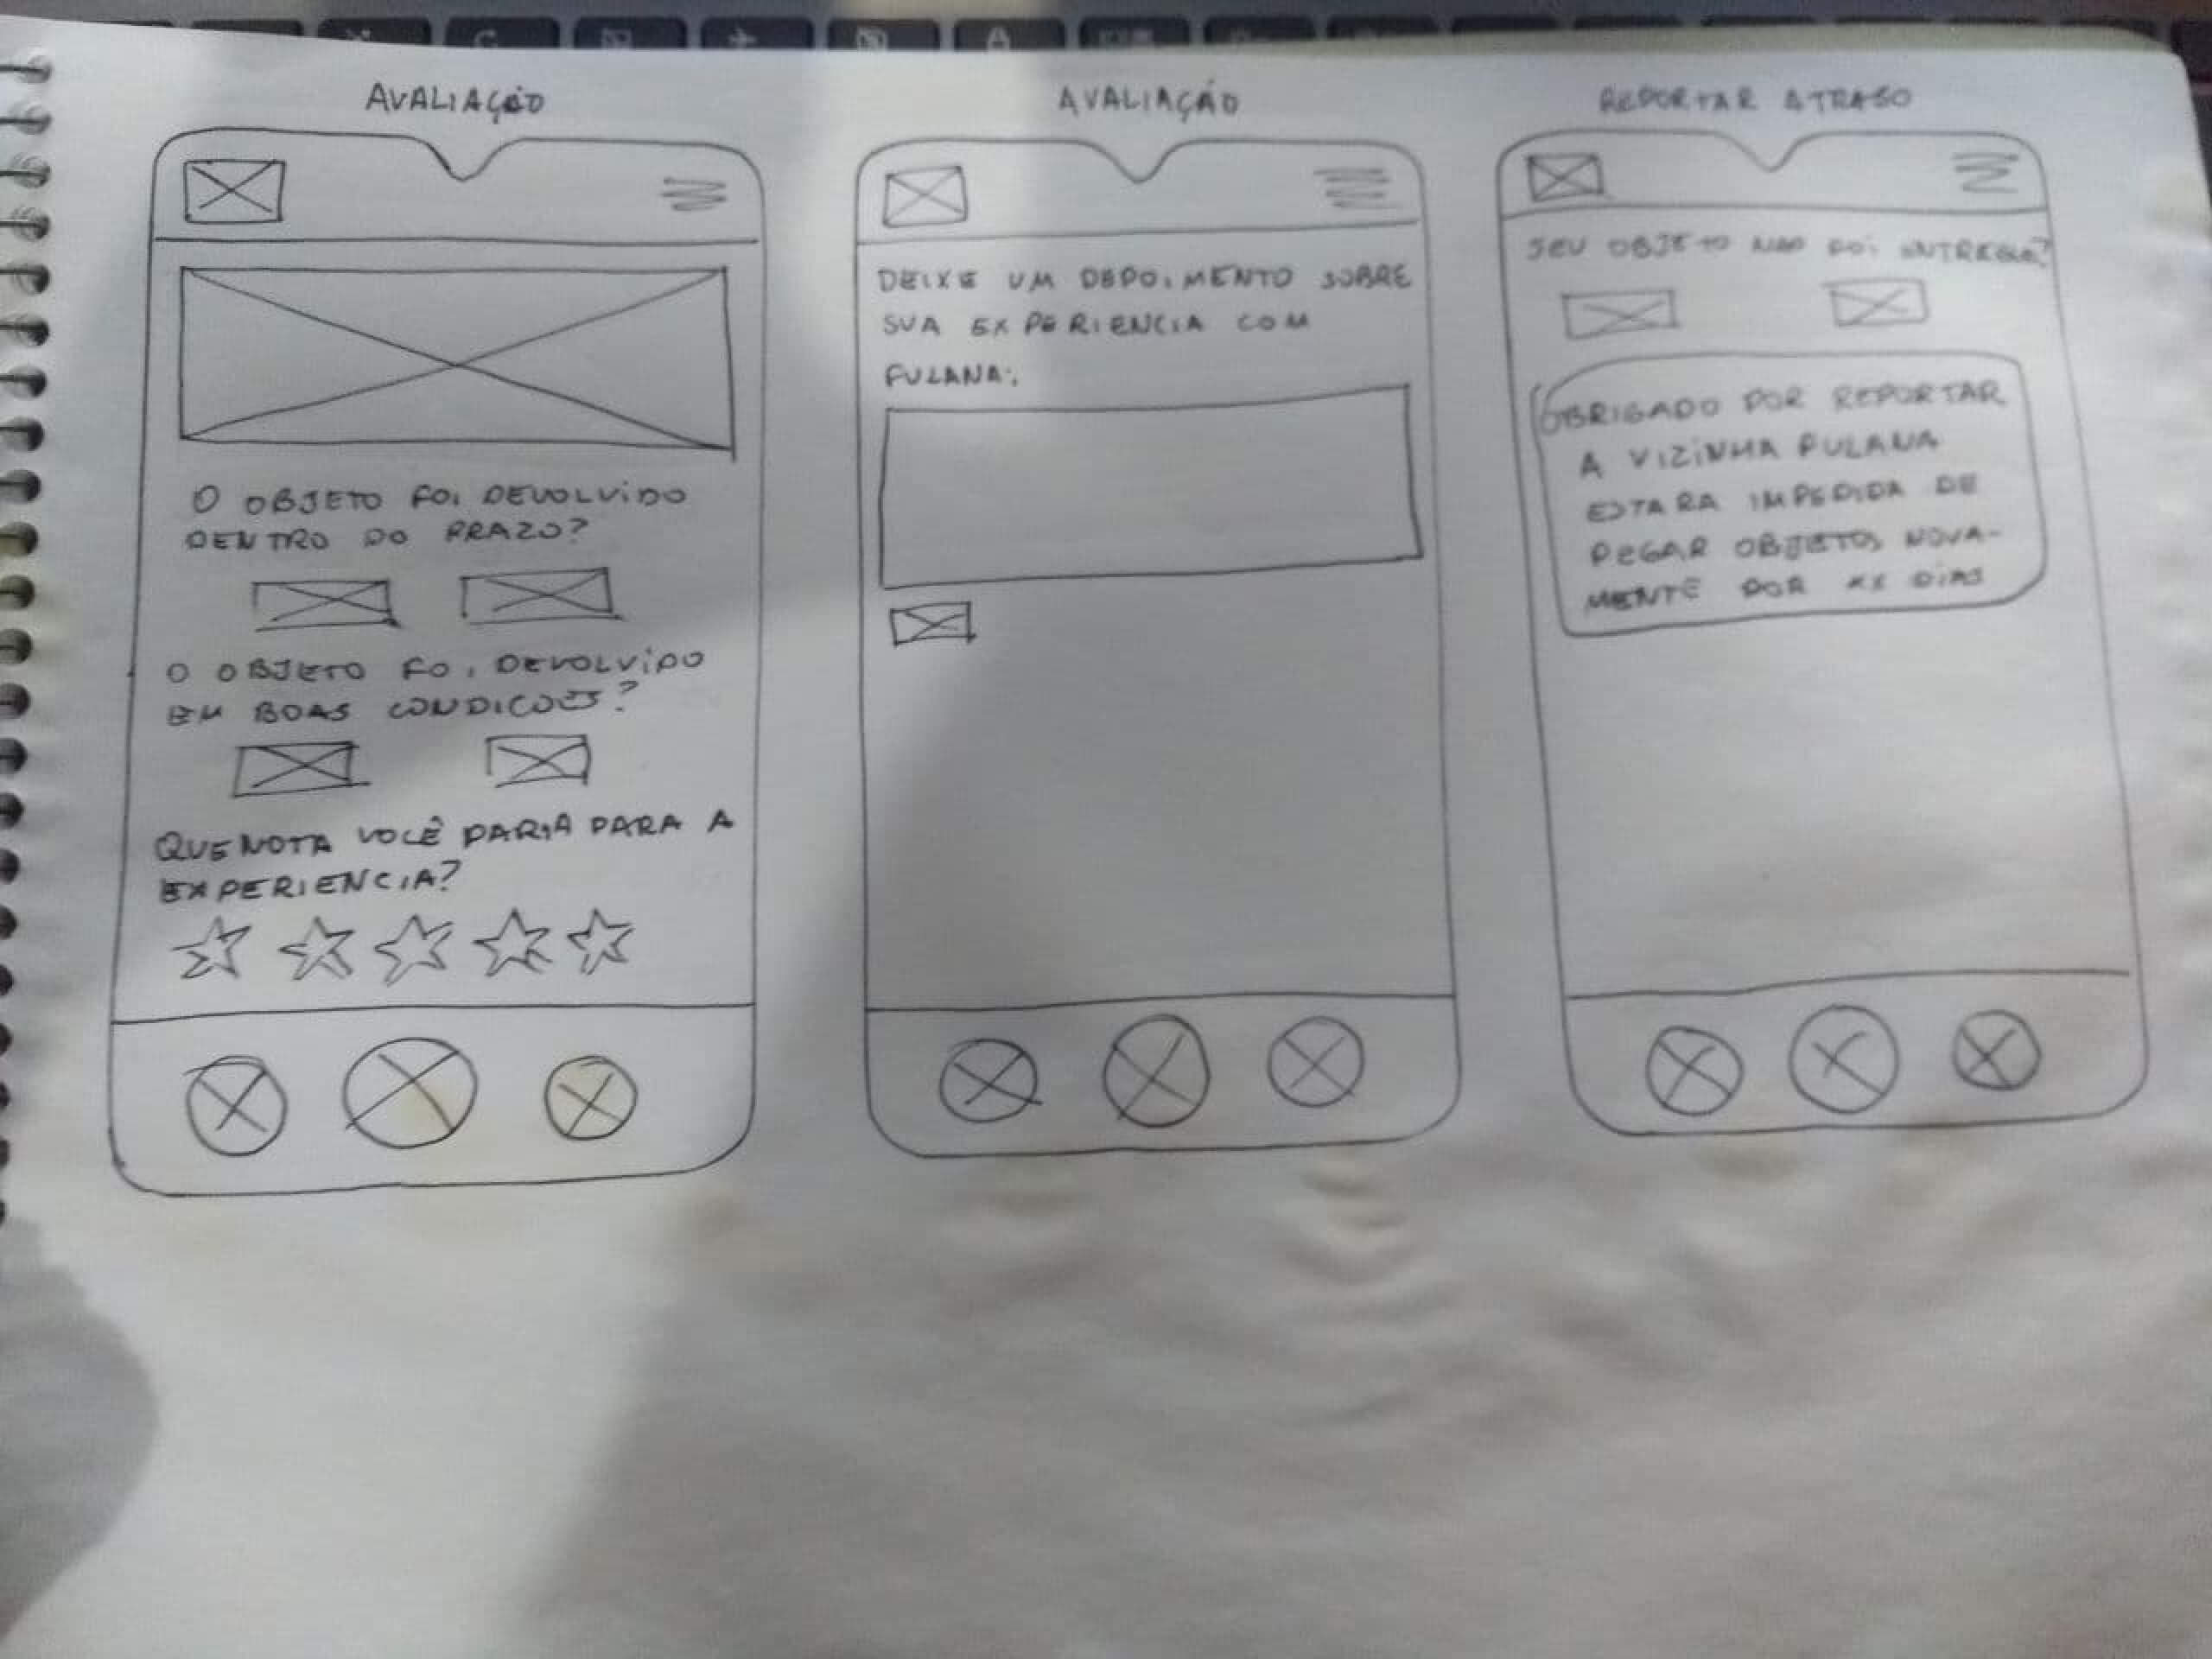 AVALIAÇÃO
O OBJETO FOI DEVOLVIDO
DENTRO DO PRAZO?
O OBJETO FOI DEVOLVIDO
EM BOAS CONDICOES?
QUE NOTA VOCÊ DARIA PARA A
EXPERIENCIA?
AVALIAÇÃO
DEIXE UM DEPOIMENTO SOBRE
SUA EXPERIENCIA COM
FULANA:
REPORTAR ATRASO
SEU OBJETO NAO FOI ENTREGUE?
OBRIGADO POR REPORTAR
A VIZINHA FULANA
ESTARA IMPEDIDA DE
PEGAR OBJETOS NOVA-
MENTE POR XX DIAS